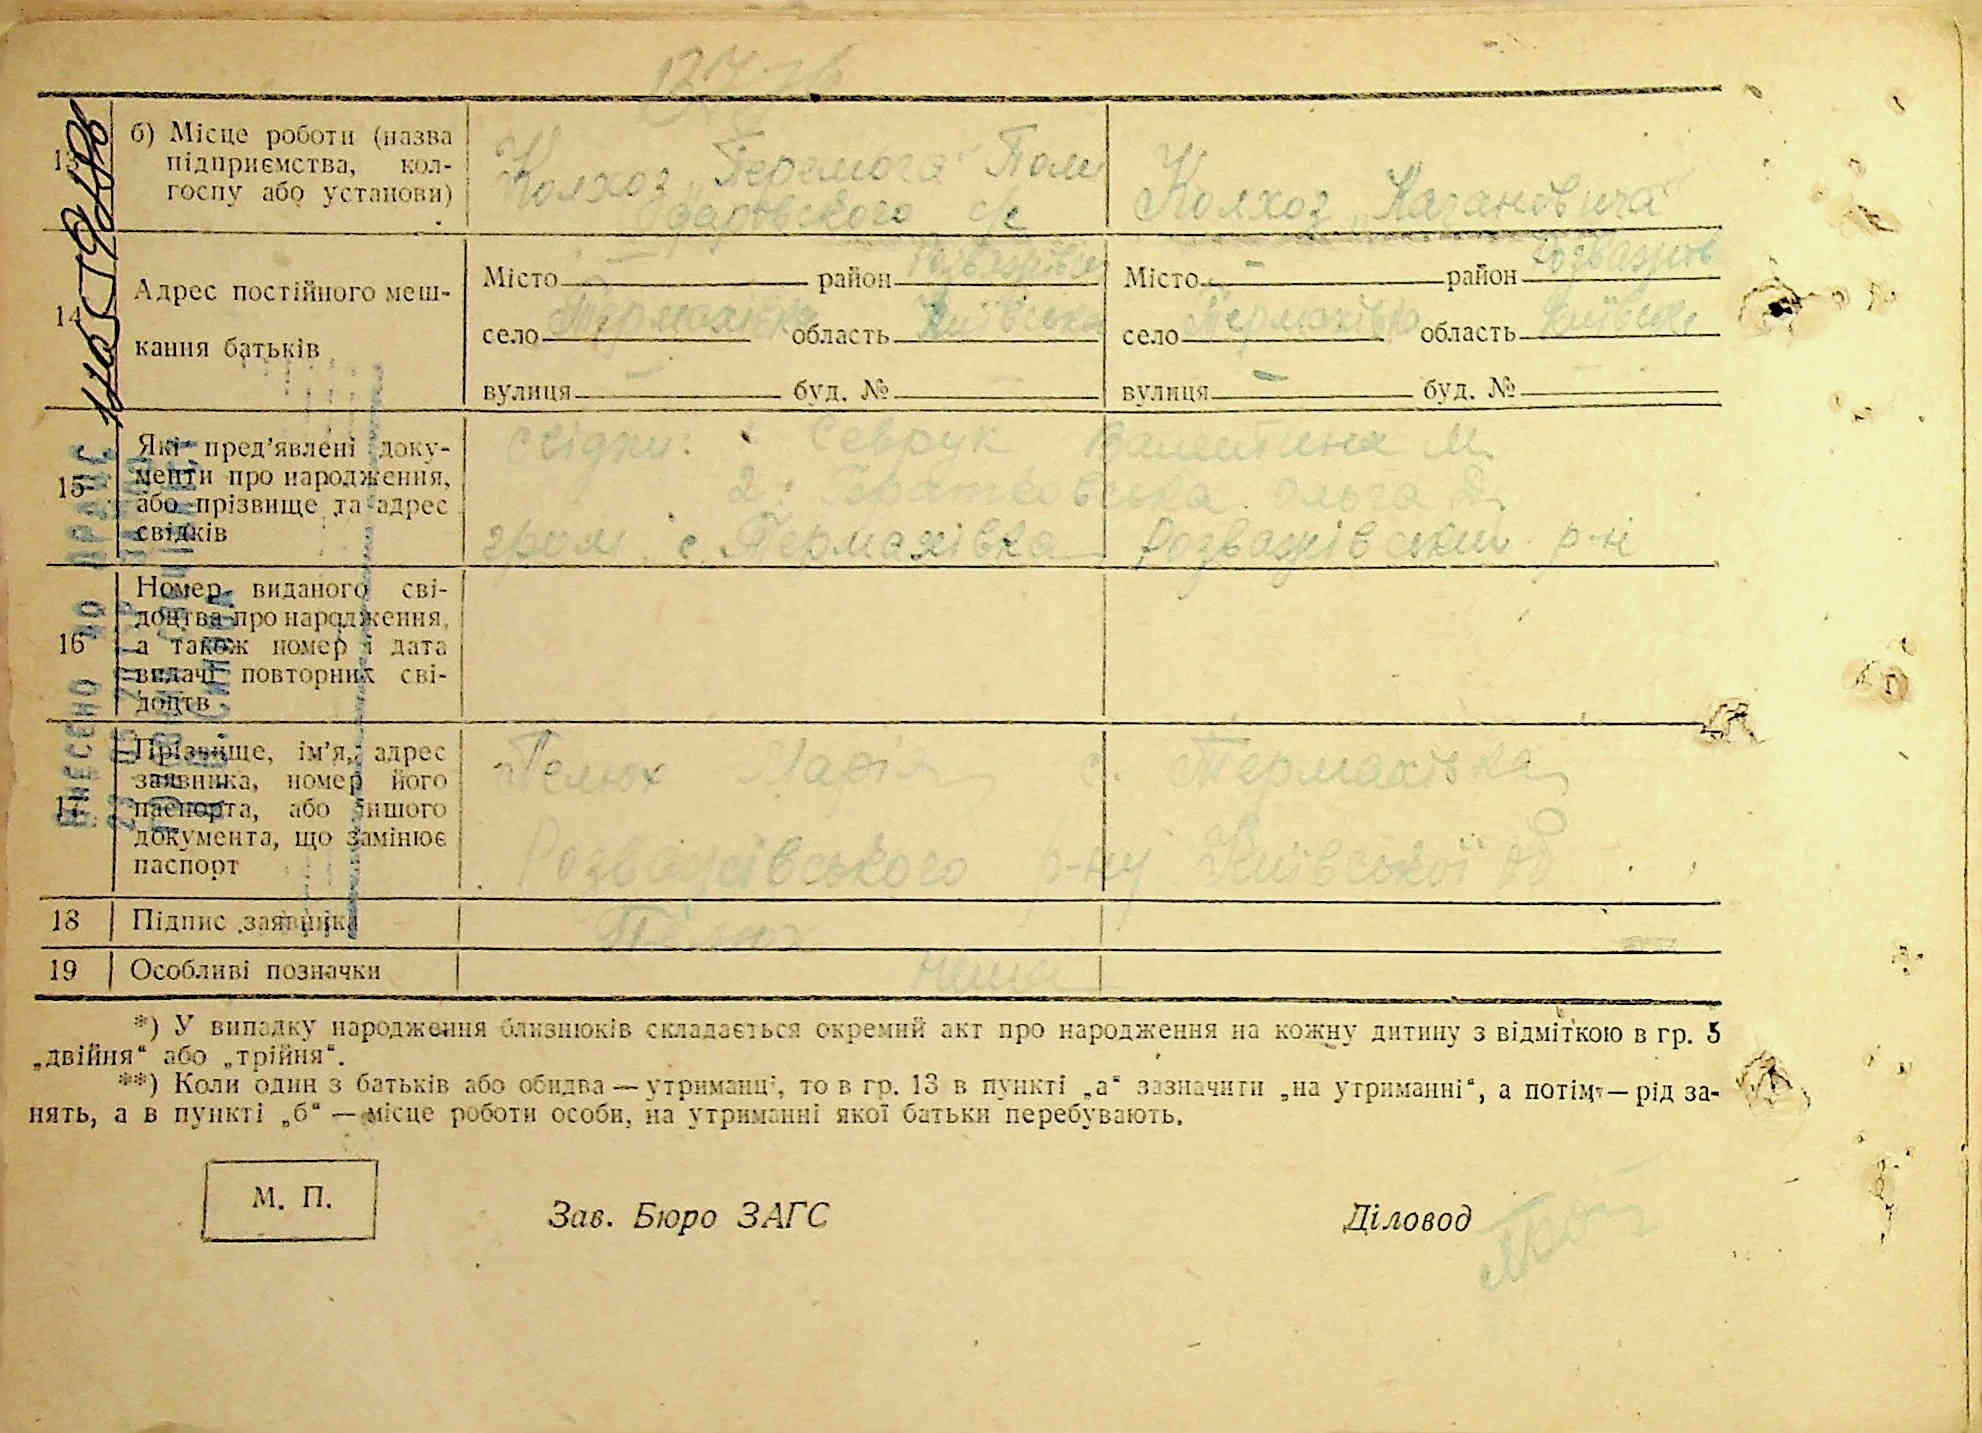 13
б) Місце роботи (назва
підприємства, кол-
госпу або установи)
Колхоз „Перемога" Поли
Колхоз „Кагановича"
14
Адрес постійного меш-
кання батьків
Місто — район Розважівськ
село Термахівка область Київська
вулиця — буд. № —
Місто — район Розважів
село Термахівка область Київськ
вулиця — буд. №
15
Які пред'явлені доку-
менти про народження,
або прізвище та адрес
свідків
свідки: Севрук Валентина М.
2. Ольга
гром. с. Термахівка Розважівський р-н
16
Номер виданого сві-
доцтва про народження,
а також номер і дата
видачі повторних сві-
доцтв
17
Прізвище, ім'я, адрес
заявника, номер його
паспорта, або іншого
документа, що замінює
паспорт
Гелюх Марія с. Термахівка
Розважівського р-ну Київської об
18
Підпис заявника
19
Особливі позначки
Нема
ВНЕСЕНО ДО ДРАЦС
*) У випадку народження близнюків складається окремий акт про народження на кожну дитину з відміткою в гр. 5
„двійня“ або „трійня“.
**) Коли один з батьків або обидва — утриманці, то в гр. 13 в пункті „а“ зазначити „на утриманні“, а потім — рід за-
нять, а в пункті „б“ — місце роботи особи, на утриманні якої батьки перебувають.
М. П.
Зав. Бюро ЗАГС
Діловод